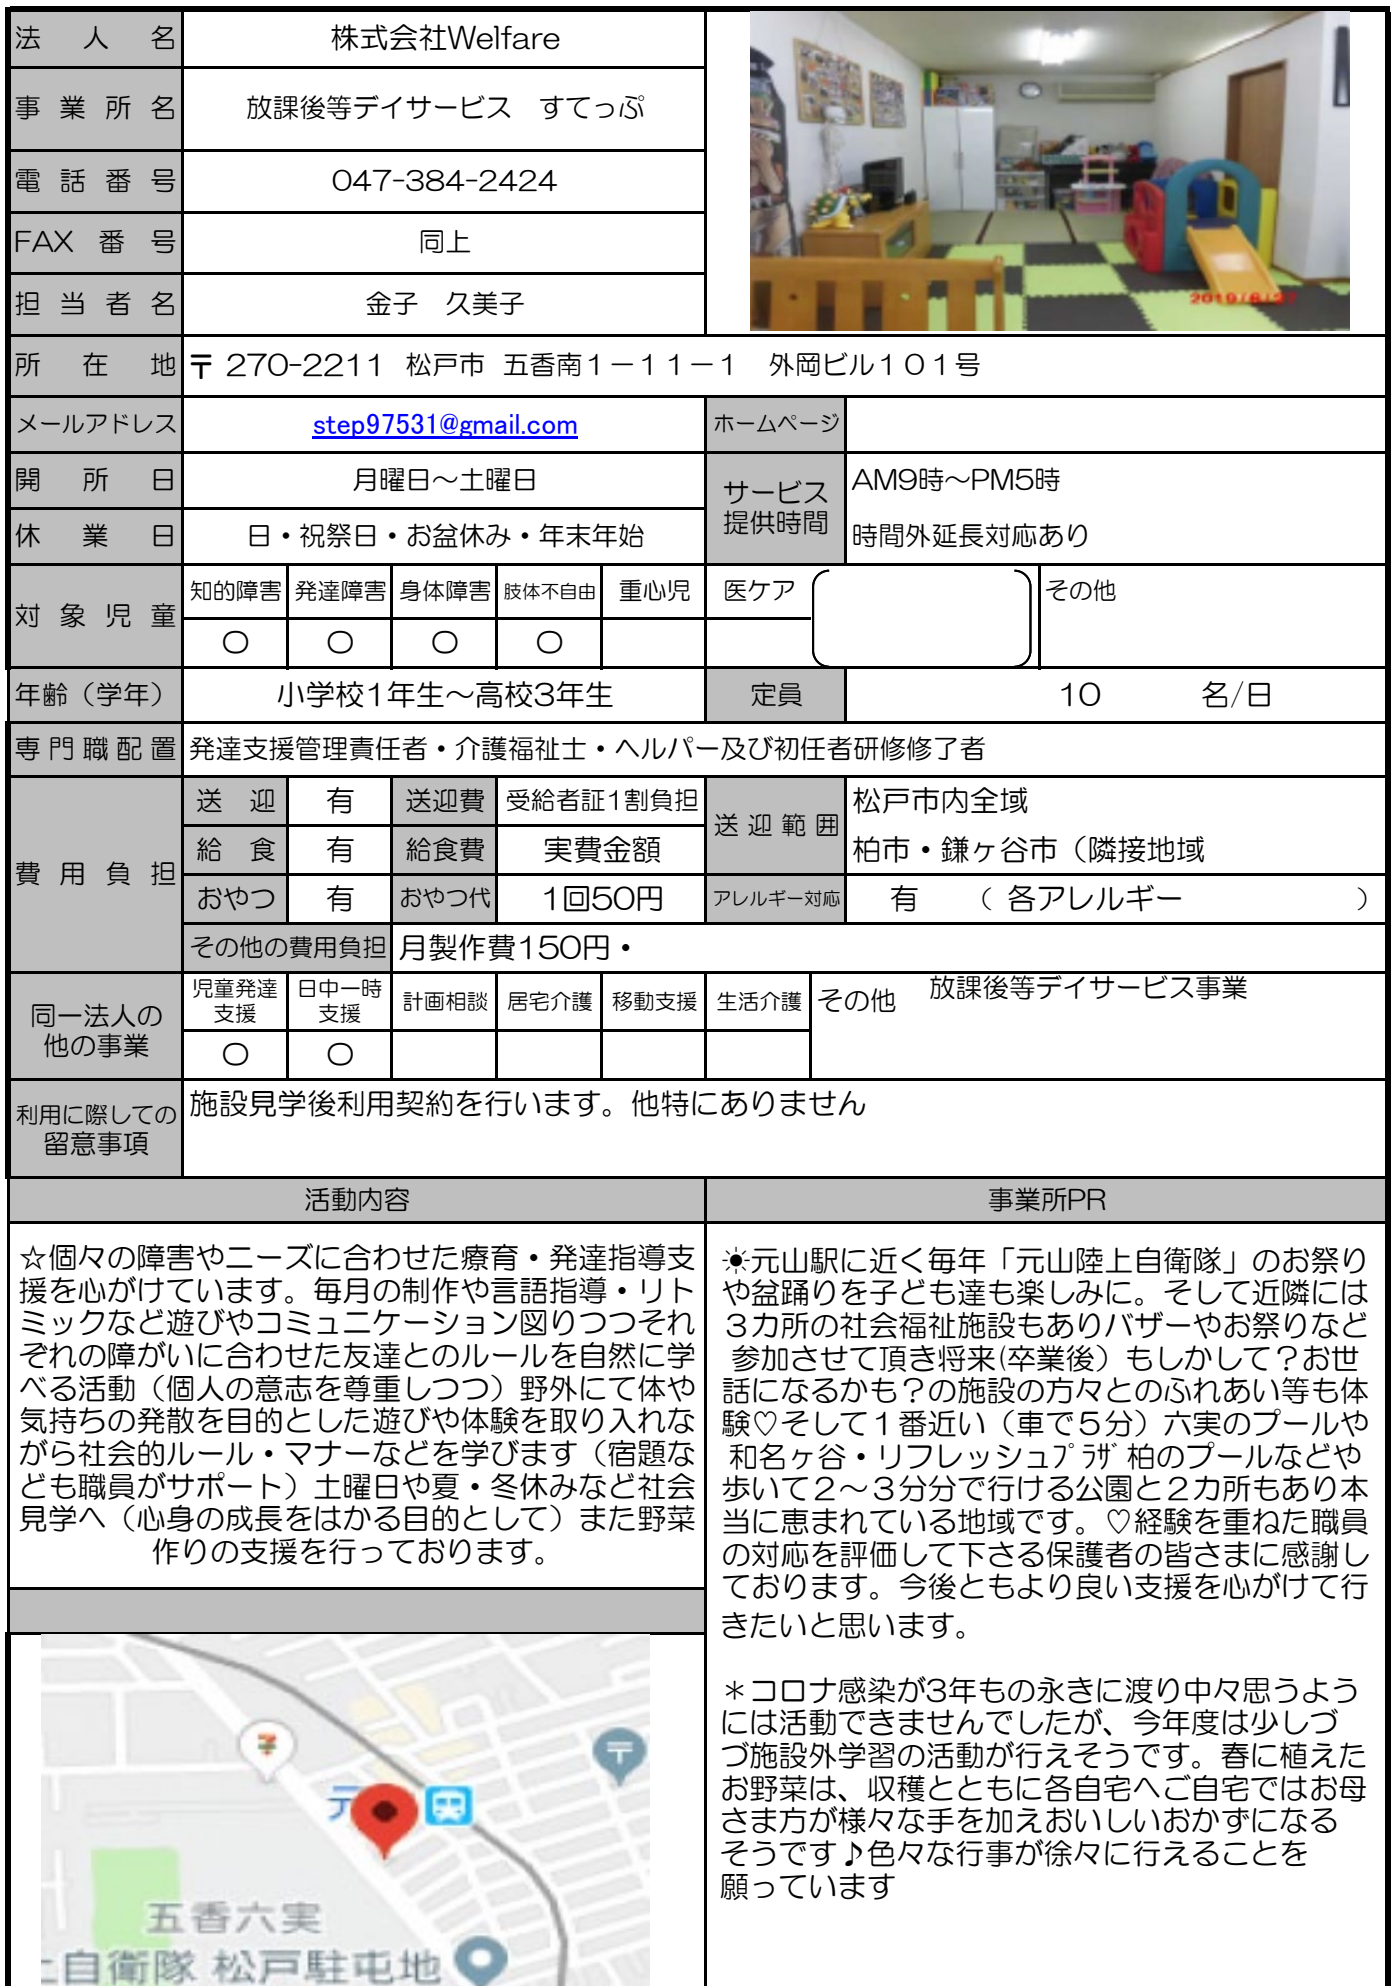 法人名 株式会社Welfare
事業所名 放課後等デイサービス　すてっぷ
電話番号 047-384-2424
FAX番号 同上
担当者名 金子　久美子
2019/6/27
所在地 〒 270-2211 松戸市 五香南１－１１－１　外岡ビル１０１号
メールアドレス step97531@gmail.com ホームページ
開所日 月曜日～土曜日 サービス提供時間 AM9時～PM5時
休業日 日・祝祭日・お盆休み・年末年始 時間外延長対応あり
対象児童 知的障害 発達障害 身体障害 肢体不自由 重心児 医ケア その他
○ ○ ○ ○
年齢（学年） 小学校1年生～高校3年生 定員 10 名/日
専門職配置 発達支援管理責任者・介護福祉士・ヘルパー及び初任者研修修了者
費用負担 送迎 有 送迎費 受給者証1割負担 送迎範囲 松戸市内全域
給食 有 給食費 実費金額 柏市・鎌ヶ谷市（隣接地域
おやつ 有 おやつ代 1回50円 アレルギー対応 有 （ 各アレルギー ）
その他の費用負担 月製作費150円・
同一法人の他の事業 児童発達支援 日中一時支援 計画相談 居宅介護 移動支援 生活介護 その他 放課後等デイサービス事業
○ ○
利用に際しての留意事項 施設見学後利用契約を行います。他特にありません
活動内容
☆個々の障害やニーズに合わせた療育・発達指導支
援を心がけています。毎月の制作や言語指導・リト
ミックなど遊びやコミュニケーション図りつつそれ
ぞれの障がいに合わせた友達とのルールを自然に学
べる活動（個人の意志を尊重しつつ）野外にて体や
気持ちの発散を目的とした遊びや体験を取り入れな
がら社会的ルール・マナーなどを学びます（宿題な
ども職員がサポート）土曜日や夏・冬休みなど社会
見学へ（心身の成長をはかる目的として）また野菜
作りの支援を行っております。
事業所PR
☀元山駅に近く毎年「元山陸上自衛隊」のお祭り
や盆踊りを子ども達も楽しみに。そして近隣には
３カ所の社会福祉施設もありバザーやお祭りなど
参加させて頂き将来(卒業後）もしかして？お世
話になるかも？の施設の方々とのふれあい等も体
験♡そして１番近い（車で５分）六実のプールや
和名ヶ谷・リフレッシュﾌﾟﾗｻﾞ柏のプールなどや
歩いて２～３分分で行ける公園と２カ所もあり本
当に恵まれている地域です。♡経験を重ねた職員
の対応を評価して下さる保護者の皆さまに感謝し
ております。今後ともより良い支援を心がけて行
きたいと思います。
＊コロナ感染が3年もの永きに渡り中々思うよう
には活動できませんでしたが、今年度は少しづ
づ施設外学習の活動が行えそうです。春に植えた
お野菜は、収穫とともに各自宅へご自宅ではお母
さま方が様々な手を加えおいしいおかずになる
そうです♪色々な行事が徐々に行えることを
願っています
〒
元
五香六実
上自衛隊 松戸駐屯地